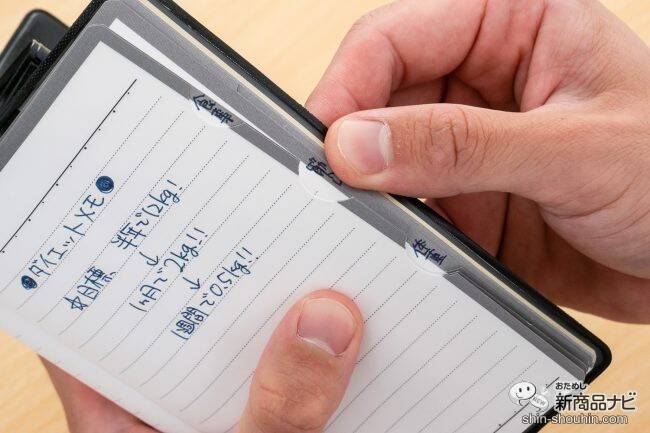 食事
体重
ダイエットメモ
☆目標 半年で12kg!
↓
1ヶ月で2kg!!
↓
1週間で0.5kg!!
おためし
新商品ナビ
shin-shouhin.com